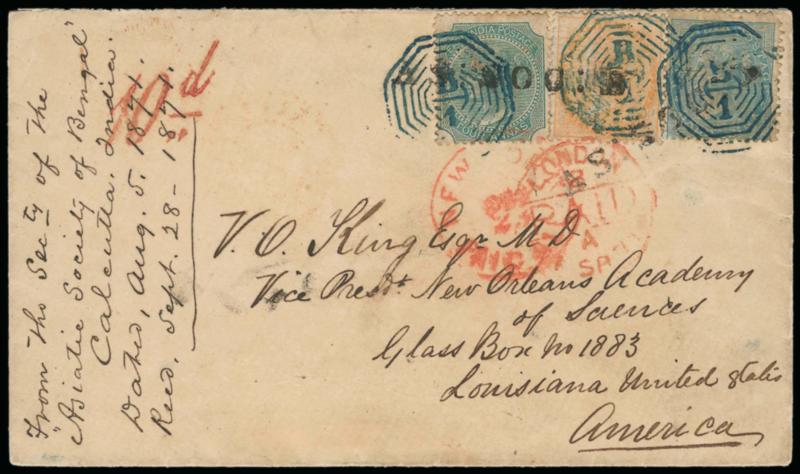 From the Secty of the
"Asiatic Society of Bengal"
Calcutta. India.
Dated, Aug. 5. 1871.
Recd. Sept. 28 - 1871.
10d
INDIA POSTAGE
FOUR ANNAS
B
1
1
LONDON
PAID
NEW
V. O. King Esqr M.D
Vice Presdt New Orleans Academy
of Sciences
Glass Box No 1883
Louisiana United States
America